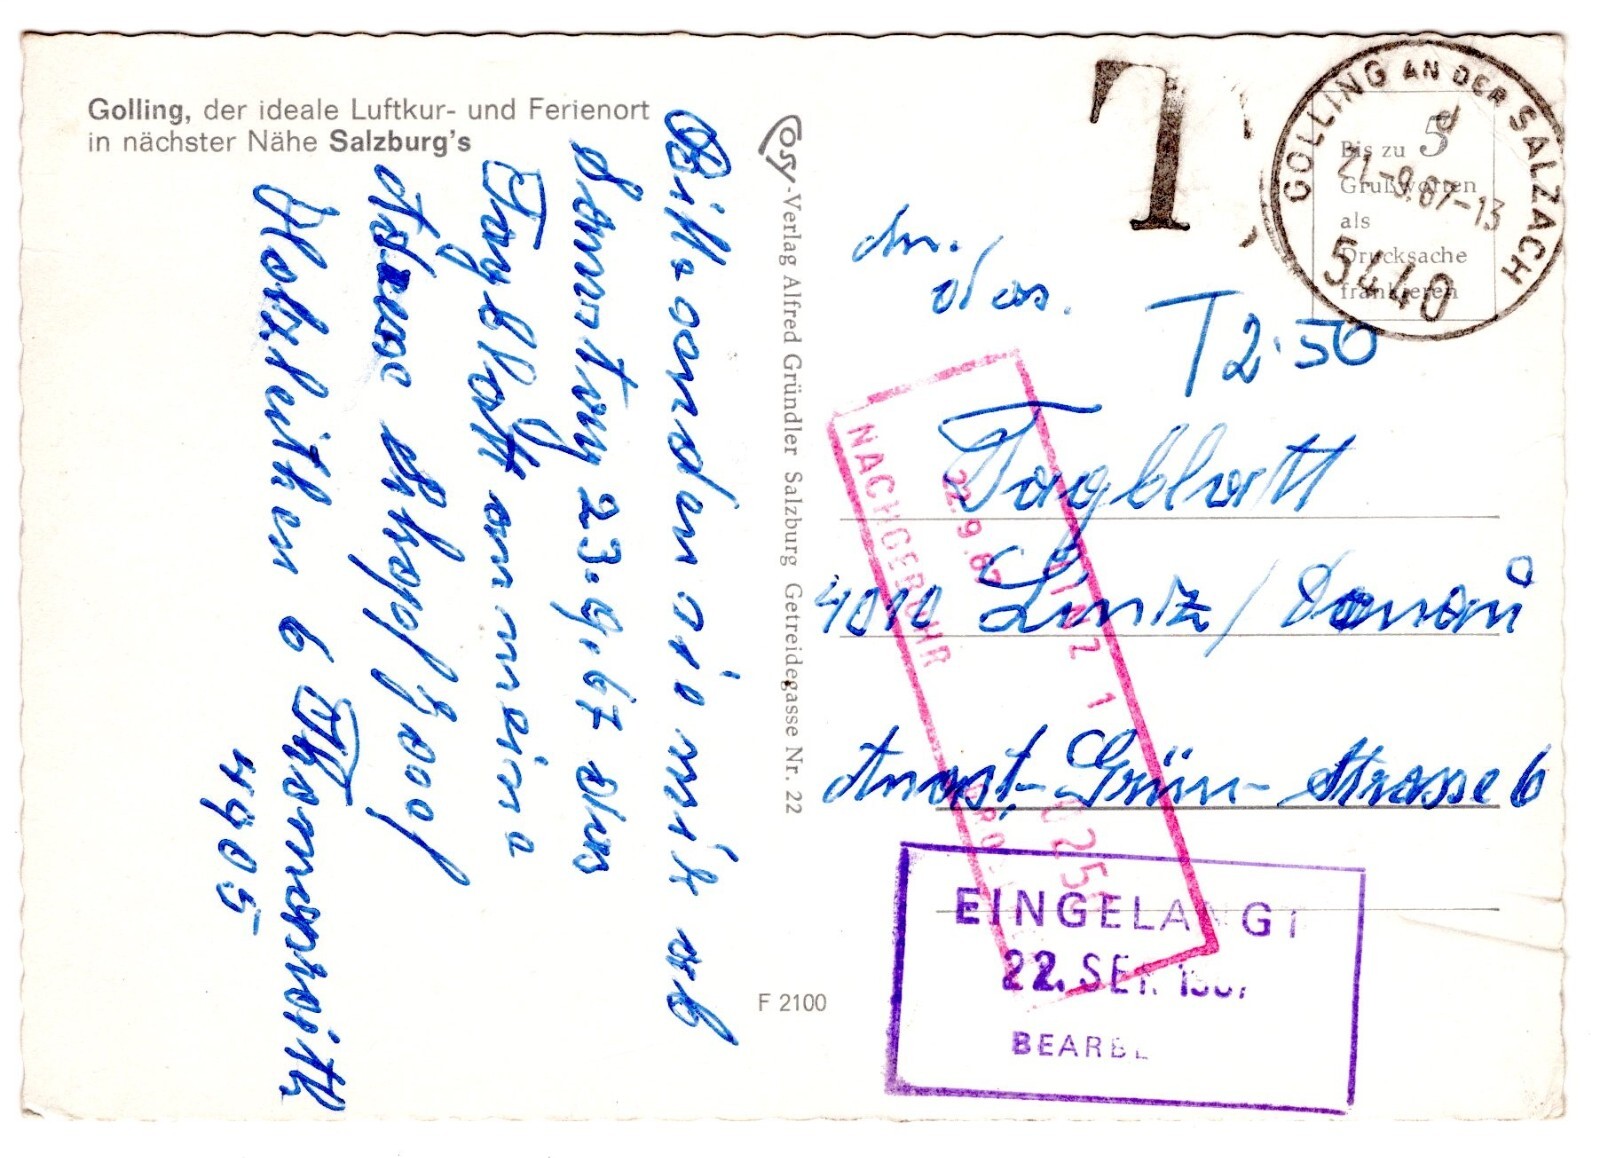 Golling, der ideale Luftkur- und Ferienort
in nächster Nähe Salzburg's
Bitte senden sie mich ab
Samstag 23.9.67 das
Tagblatt an meine
Adresse
6 Thomasroith
4905
Cosy-Verlag Alfred Gründler Salzburg Getreidegasse Nr. 22
F 2100
T
GOLLING AN DER SALZACH
21.-9.67-13
5440
Bis zu 5
Grußworten
als
Drucksache
frankieren
An.
das.
T 2·50
Tagblatt
4010 Linz / Donau
Anast. Grün-Strasse 6
NACHGEBÜHR
22.9.67
LINZ 1
025
EINGELANGT
22. SEP. 1967